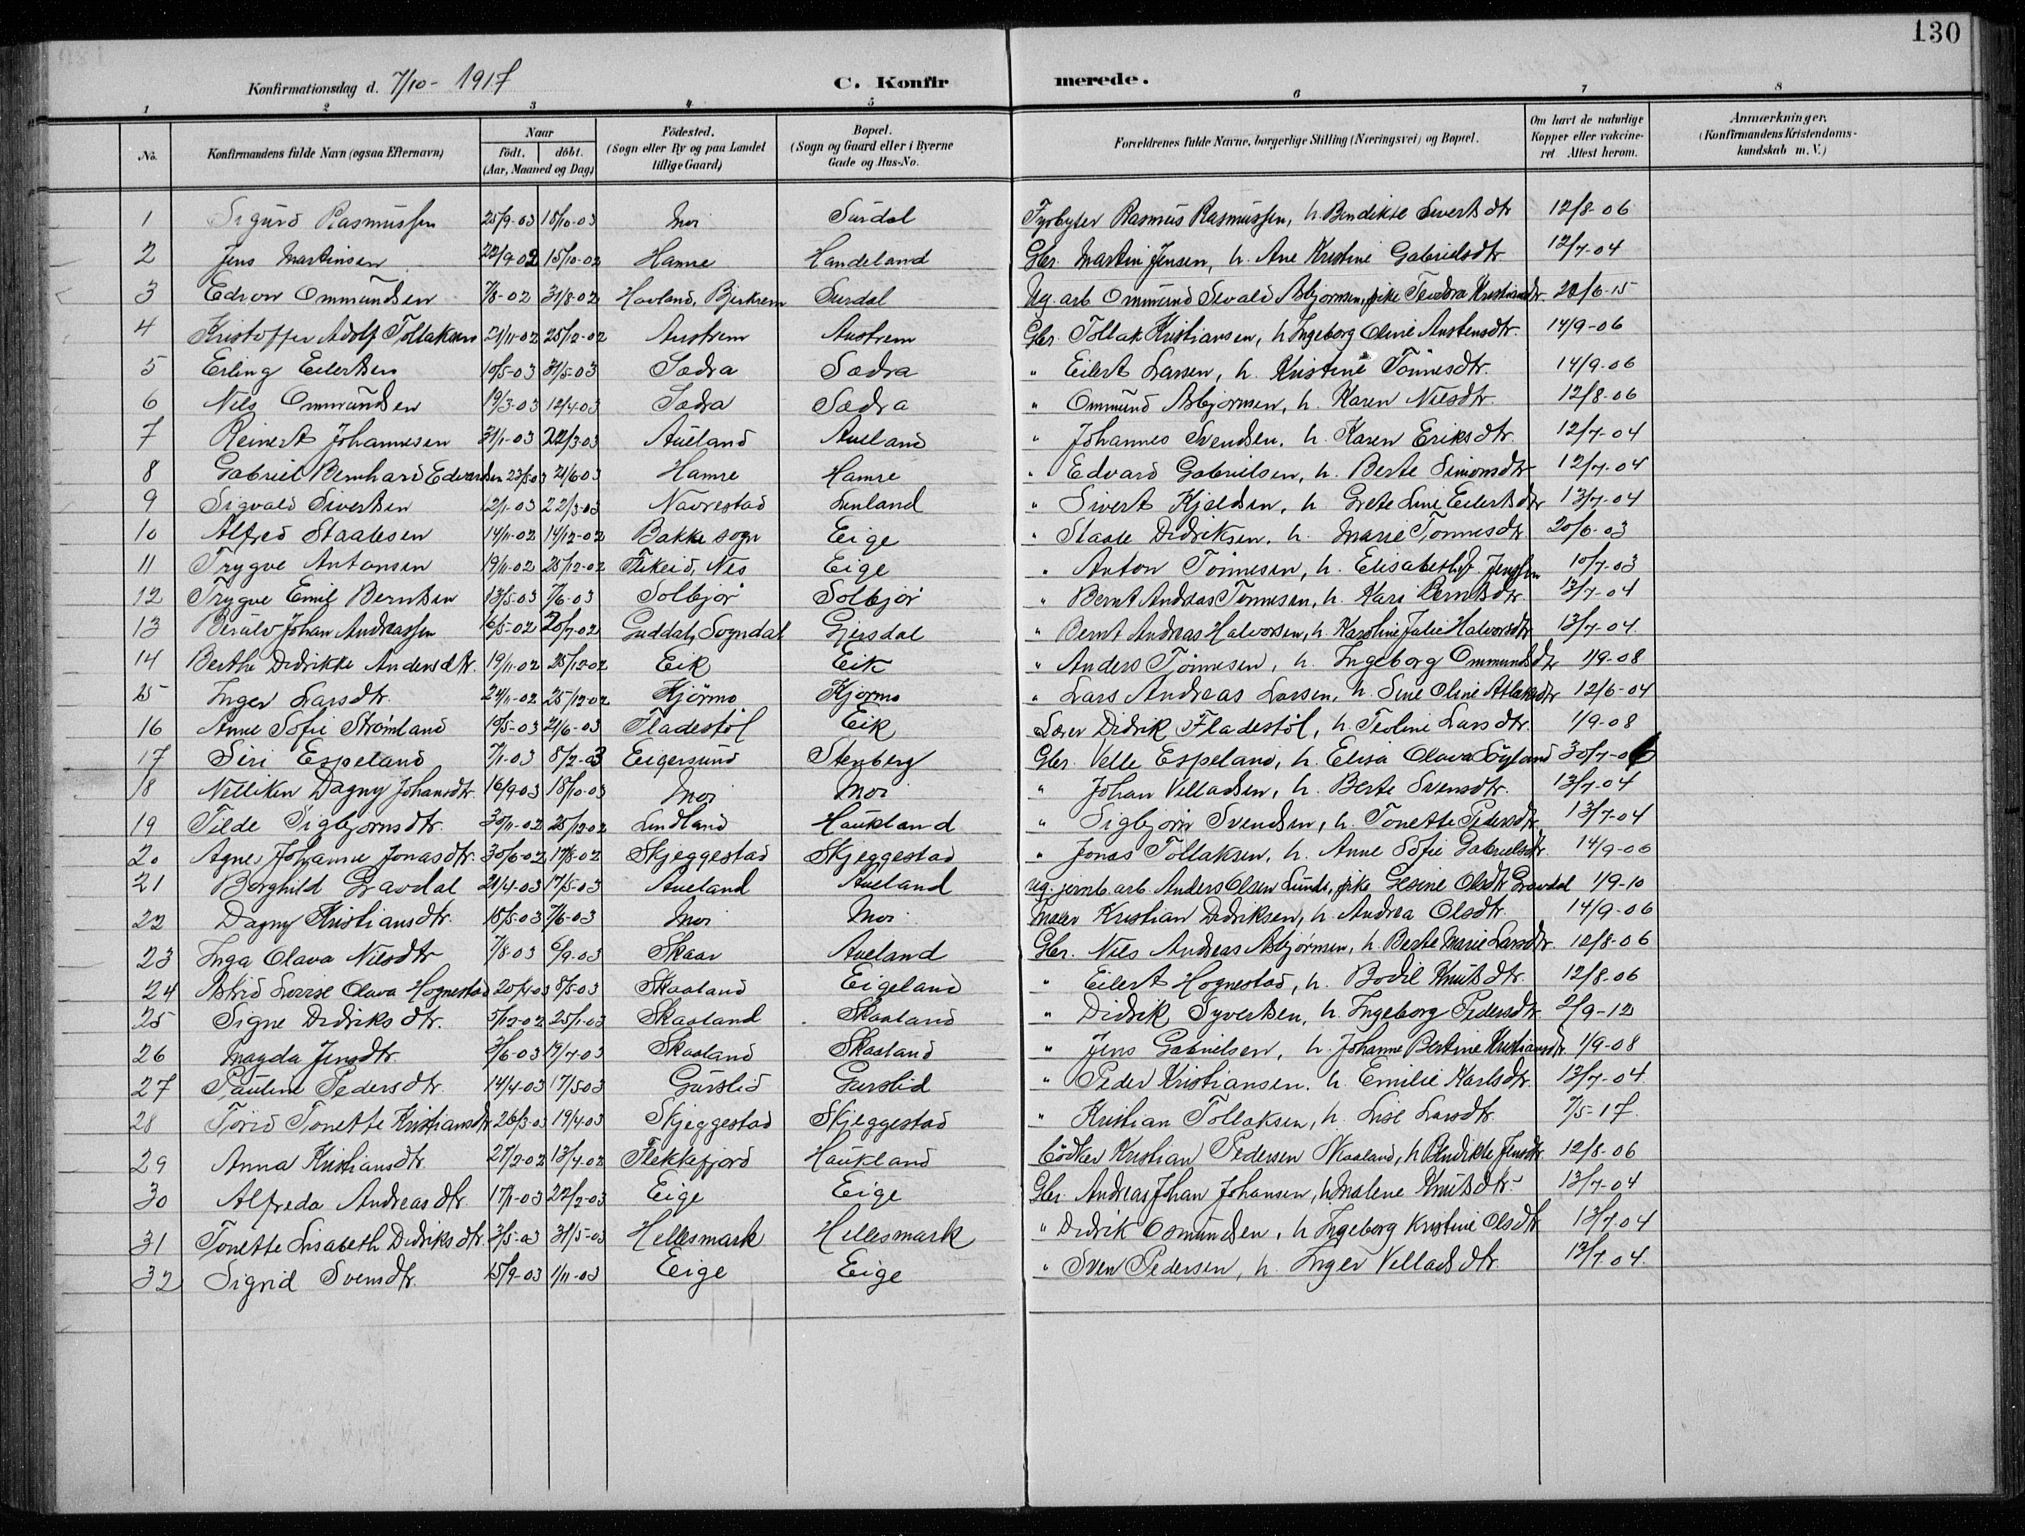 130
Konfirmationsdag d. 7/10 - 1917 C. Konfirmerede.
1 2 3 4 5 6 7 8
No. Konfirmandens fulde Navn (ogsaa Efternavn) Naar födt. döbt. (Aar, Maaned og Dag) Födested. (Sogn eller By og paa Landet tillige Gaard) Bopæl. (Sogn og Gaard eller i Byerne Gade og Hus-No. Forældrenes fulde Navne, borgerlige Stilling (Næringsvei) og Bopæl. Om havt de naturlige Kopper eller vakcineret Attest herom. Anmærkninger. (Konfirmandens Kristendomskundskab m. V.)
1 Sigurd Rasmussen 25/9-03 18/10-03 Moi Surdal Fyrbyter Rasmus Rasmussen, h. Bendikte Sivertsdtr 12/8-06
2 Jens Martinsen 22/9-02 15/10-02 Hamre Handeland Gbr. Martin Jensen, h. Ane Kristine Gabrielsdtr. 12/7-04
3 Edvon Ommundsen 7/8-02 31/8-02 Hovland, Bjerkrem Surdal Ug. arb. Ommund Sevald Asbjørnsen, pike Teodora Kristiansdtr 20/6-15
4 Kristoffer Adolf Tollaksen 21/11-02 25/12-02 Austrem Austrem Gbr. Tollak Kristiansen, h Ingeborg Oline Austensdtr. 14/9-06
5 Erling Eilertsen 10/5-03 31/5-03 Sædra Sædra " Eilert Larsen, h. Kristine Tønnesdtr. 14/9-06
6 Nils Ommundsen 19/3-03 12/4-03 Sædra Sædra " Ommund Asbjørnsen, h. Karen Nilsdtr. 12/8-06
7 Reinert Johannesen 31/1-03 22/3-03 Aueland Aueland " Johannes Svendsen, h. Karen Eriksdtr. 12/7-04
8 Gabriel Bernhard Edvardsen 23/5-03 21/6-03 Hamre Hamre " Edvard Gabrielsen, h. Berte Simonsdtr 12/7-04
9 Sigvald Sivertsen 12/1-03 22/3-03 Navrestad Lunland " Sivert Kjeldsen, h. Grete Line Eilertsdtr 13/7-04
10 Alfred Staalesen 14/11-02 14/12-02 Bakke sogn Eige " Staale Didriksen, h. Marie Tønnesdtr. 20/6-03
11 Trygve Antonsen 19/11-02 25/12-02 Fikeid, Nes Eige " Anton Tønnesen, h. Elisabeth f. Jenssen 10/7-03
12 Trygve Emil Berntsen 13/5-03 7/6-03 Solbjør Solbjør " Bernt Andreas Tønnesen, h. Kari Berntsdtr. 13/7-04
13 Berulv Johan Andreassen 6/5-02 20/7-02 Guddal, Sogndal Gjersdal " Bernt Andreas Halvorsen, h. Karoline Jalie Halvorsdtr 13/7-04.
14 Berthe Didrikke Andersdtr. 19/11-02 25/12-02 Eik Eik " Anders Tønnesen, h. Ingeborg Ommundsdtr 1/9-08
15 Inger Larsdtr. 24/11-02 25/12-02 Kjörmo Kjörmo " Lars Andreas Larsen, h. Sine Oline Atlaksdtr 12/6-04
16 Anne Sofie Strømland 10/5-03 21/6-03 Fladestøl Eik Lærer Didrik Fladestøl, h. Teoline Larsdtr. 1/9-08
17 Siri Espeland 7/1-03 8/2-03 Eigersund Stenberg Gbr. Velle Espeland, h. Elisa Olava Søyland 30/7-06
18 Nelliken Dagny Johansdtr. 16/9-03 18/10-03 Moi Moi " Johan Villadsen, h. Berte Svensdtr. 13/7-04
19 Tilde Sigbjørnsdtr. 30/11-02 25/12-02 Lindland Haukland " Sigbjørn Svendsen, h. Tonette Pedersdtr 13/7-04
20 Agnes Johanne Jonasdtr. 30/6-02 17/8-02 Skjeggestad Skjeggestad " Jonas Tollaksen, h. Anne Sofie Gabrielsdtr. 14/9-06
21 Borghild Gravdal 21/4-03 17/5-03 Aueland Aueland ug. jernb. arb. Anders Olsen Lunde, pike Gesine Olsdtr Gravdal 1/9-10
22 Dagny Kristiansdtr. 15/5-03 7/6-03 Moi Moi Maler Kristian Didriksen, h. Andrea Olsdtr. 14/9-06
23 Inga Olava Nilsdtr 7/8-03 6/9-03 Skaar Aueland Gbr. Nils Andreas Asbjørnsen, h. Berte Marie Larsdtr. 12/8-06
24 Astrid Lovise Olava Hognestad 20/4-03 8/5-03 Skaaland Eigeland " Eilert Hognestad, h. Bodil Knutsdtr. 12/8-06
25 Signe Didriksdtr. 5/12-02 25/1-03 Skaaland Skaaland " Didrik Syvertsen, h. Ingeborg Pedersdtr. 2/9-12
26 Magda Jensdtr. 2/6-03 19/7-03 Skaaland Skaaland " Jens Gabrielsen, h. Johanne Bertine Kristiansdtr. 1/9-08
27 Pauline Pedersdtr. 14/4-03 17/5-03 Gurslid Gurslid " Peder Kristiansen, h. Emilie Karlsdtr. 13/7-04.
28 Torid Tonette Kristiansdtr 26/3-03 19/4-03 Skjeggestad Skjeggestad " Kristian Tollaksen, h. Lise Larsdtr. 7/5-17.
29 Anna Kristiansdtr. 27/2-02 13/4-02 Flekkefjord Haukland Bødker Kristian Pedersen Skaaland, h Bendikte Jensdtr. 12/8-06
30 Alfreda Andreasdtr. 17/1-03 22/2-03 Eige Eige Gbr. Andreas Johan Johansen, h Malene Knutsdtr. 13/7-04
31 Tonette Lisabeth Didriksdtr. 3/5-03 31/5-03 Hellesmark Hellesmark " Didrik Osmundsen, h Ingeborg Kristine Olsdtr. 13/7-04
32 Sigrid Svensdtr. 15/9-03 1/11-03 Eige Eige " Sven Pedersen, h. Inger Velladsdtr. 13/7-04.